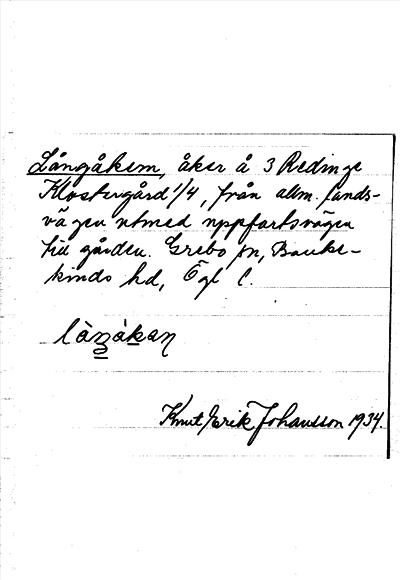 Långåkern, åker å 3 Redinge
Klostergård 1/4, från allm. lands-
vägen utmed uppfartsvägen
till gården. Grebo sn, Banke-
kinds hd, Ögl l.
làŋákaɳ
Knut Erik Johansson 1934.